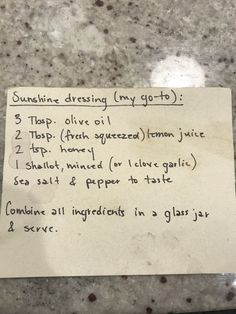 Sunshine dressing (my go-to):
3 Tbsp. olive oil
2 Tbsp. (fresh squeezed) lemon juice
2 tsp. honey
1 shallot, minced (or 1 clove garlic)
Sea salt & pepper to taste
Combine all ingredients in a glass jar
& serve.